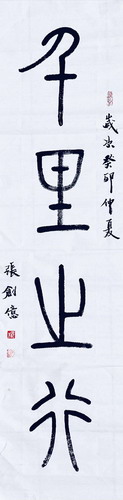 千里之行
歲次癸卯仲夏
張創億